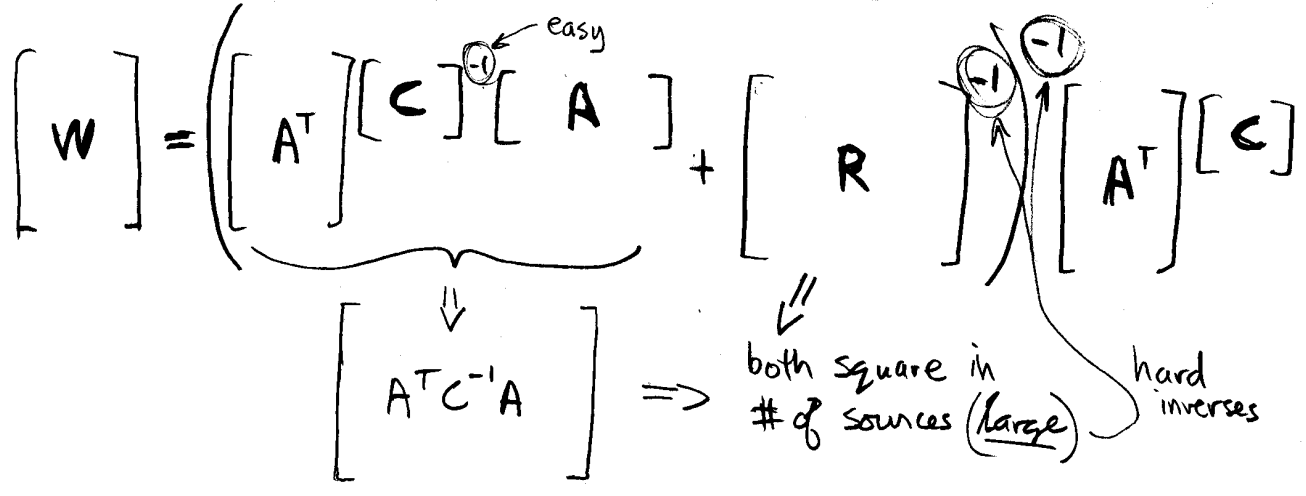 easy
[W] = ([Aᵀ][C]⁻¹[A] + [R]⁻¹)⁻¹[Aᵀ][C]
⇓
[AᵀC⁻¹A] ⇒ both square in
# of sources (large)
hard
inverses